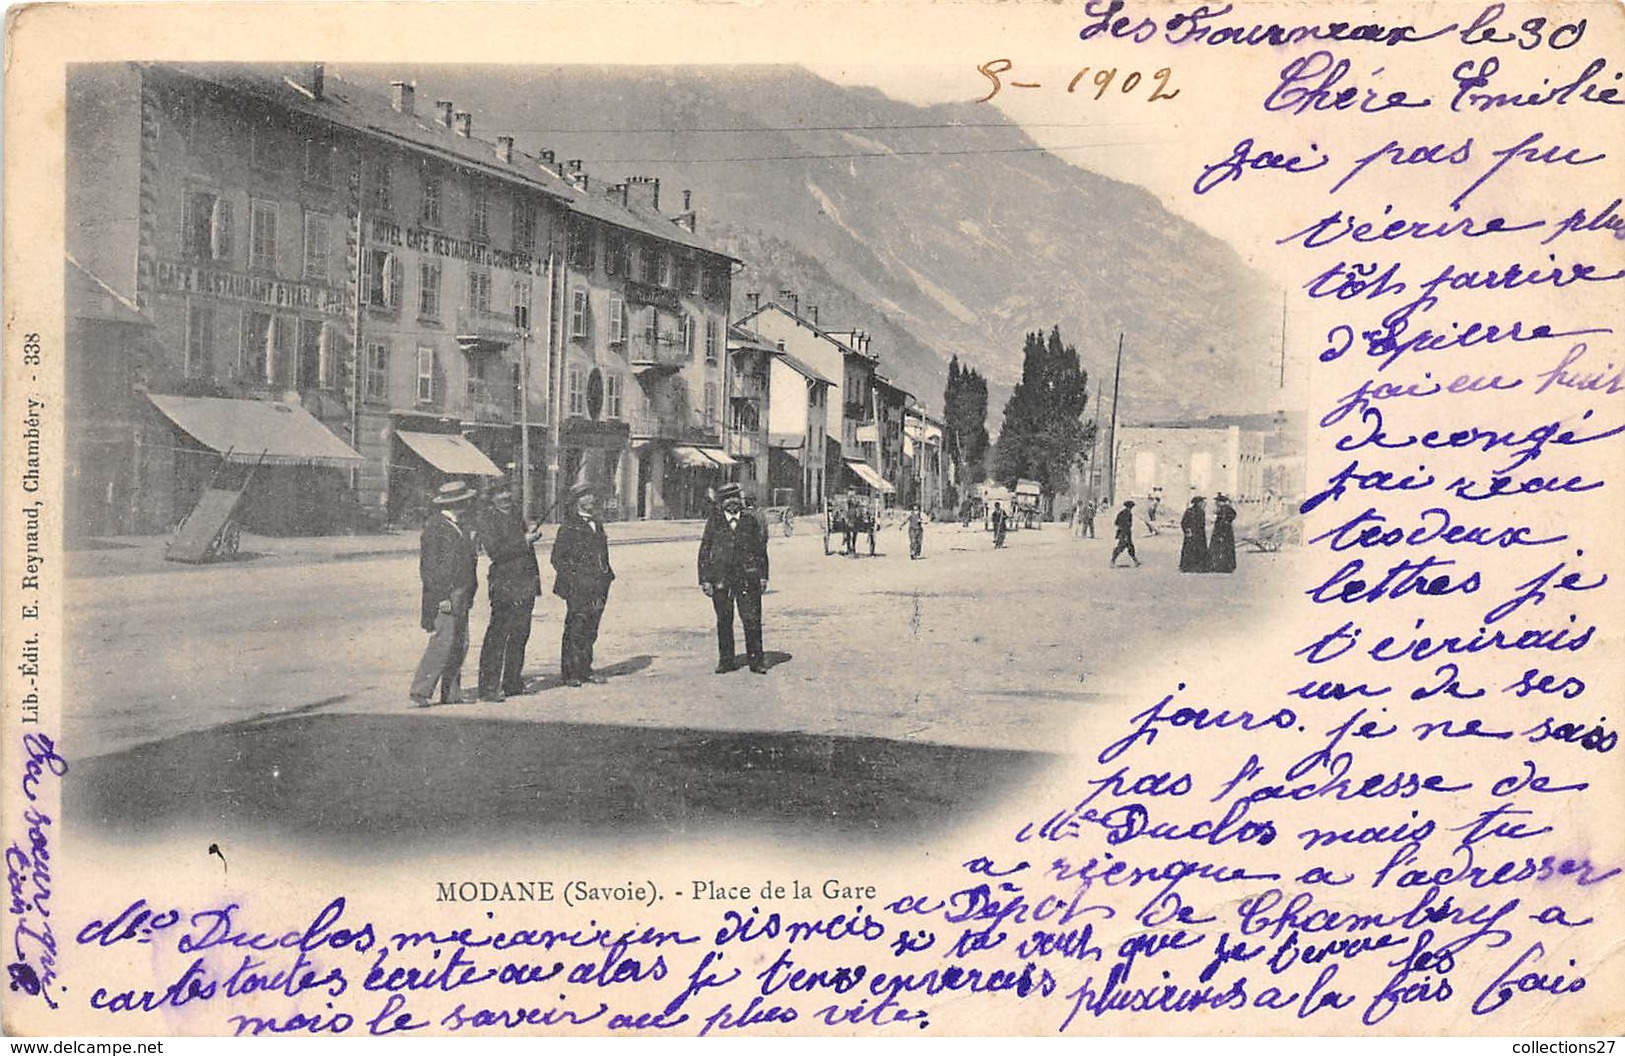 Les Fourneaux le 30
9-1902
Chére Emilie
jai pas pu
t'écrire plus
tôt jarrive
d'Epierre
jai eu huit
de congé
jai reçu
tes deux
lettres je
t'écrirais
un de ses
jours. je ne sais
pas l'adresse de
Mme Duclos mais tu
a rienque a l'adresser
a Dêpot de Chambéry a
Mr Duclos, mécanicien dis mois si tu veux que je tenvoie les
cartes toutes écrite ou alors je ten enverais plusieurs a la fois fais
mois le savoir au plus vite.
Ta sœur qui
t'aime
HOTEL CAFÉ RESTAURANT du COMMERCE J.
CAFÉ RESTAURANT D'ITALIE
MODANE (Savoie). - Place de la Gare
Lib.-Édit. E. Reynaud, Chambéry. - 338
collections27